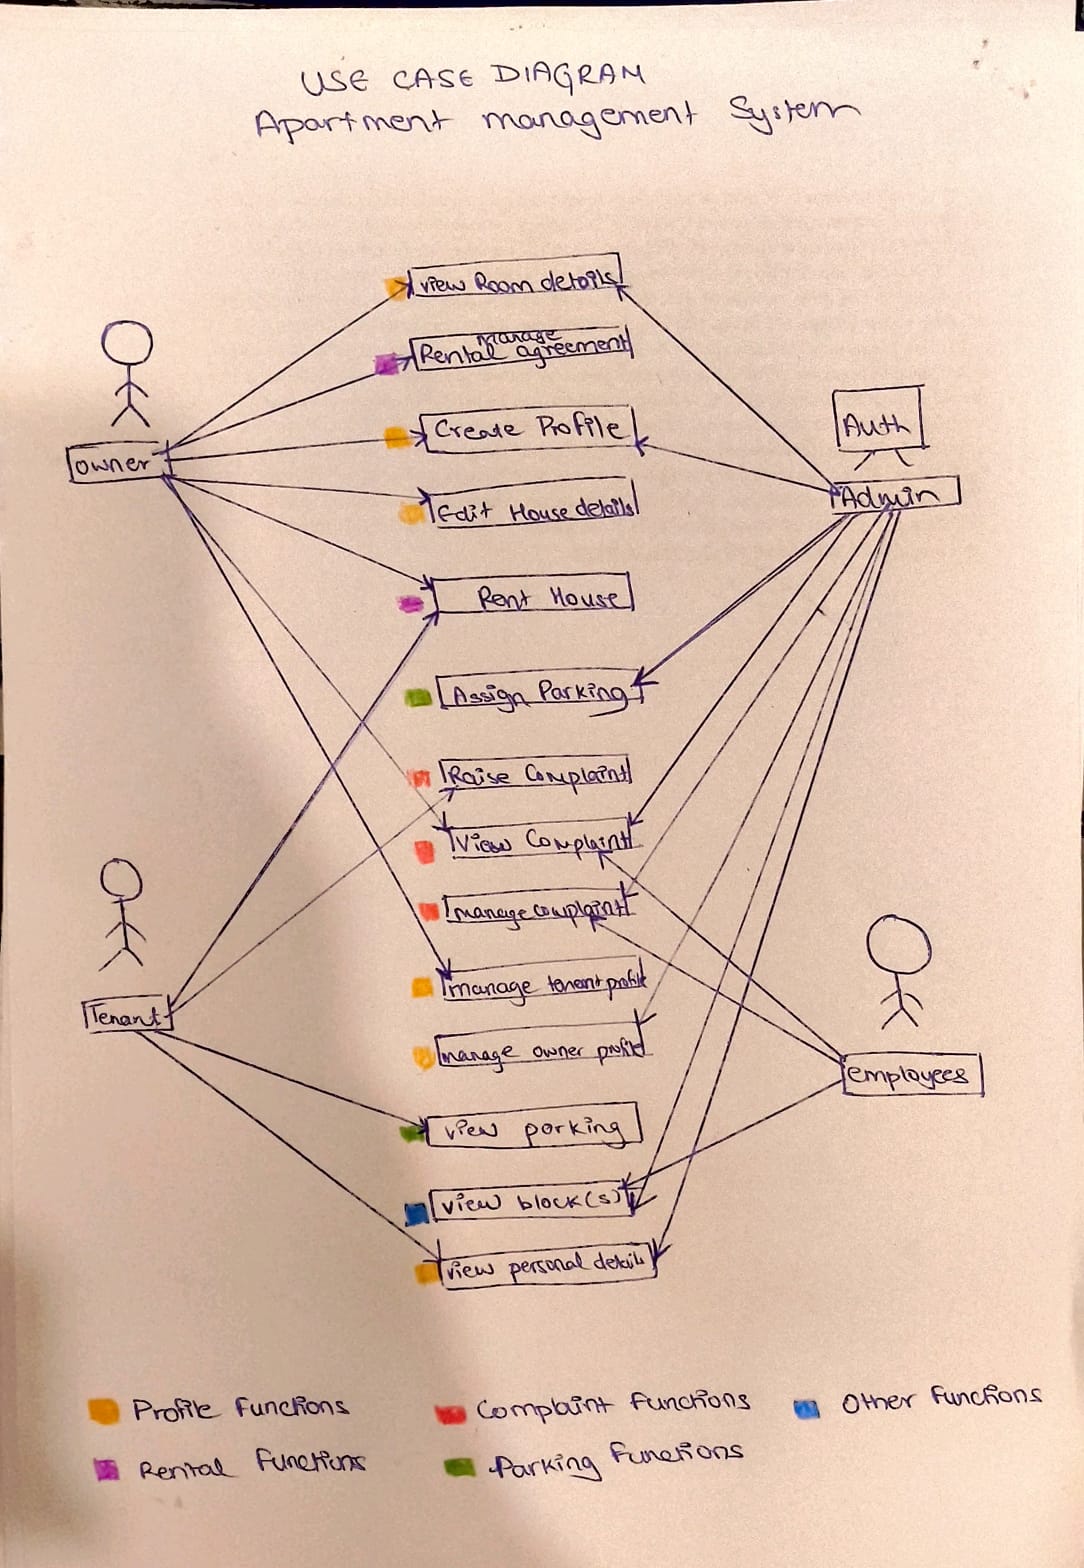 USE CASE DIAGRAM
Apartment management System
view Room details
manage
Rental agreement
Create Profile
Edit House details
Rent House
Assign Parking
Raise Complaint
View Complaint
manage complaint
manage tenant profile
manage owner profile
view parking
view block(s)
view personal details
owner
Tenant
Auth
Admin
employees
Profile Functions
Complaint Functions
Other Functions
Rental Functions
Parking Functions